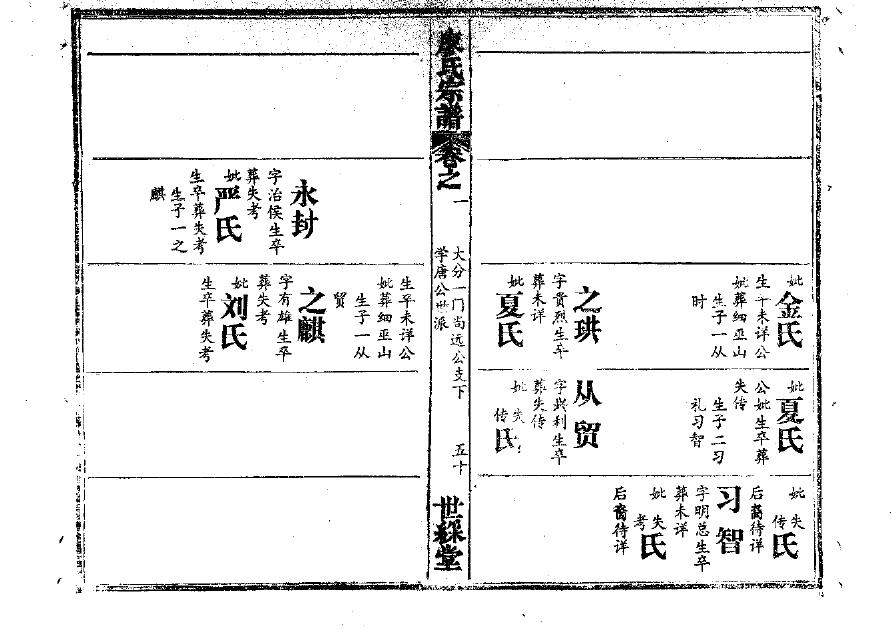 妣金氏
生卒未详公
妣葬细巫山
生子一从
时
之珙
字贵烈生卒
葬未详
妣夏氏
妣夏氏
公妣生卒葬
失传
生子二习
礼习智
从贸
字兴利生卒
葬失传
妣失传氏
妣失传氏
后裔待详
习智
字明总生卒
葬未详
妣失考氏
后裔待详
廖氏宗譜
卷之一
大分一门尚远公支下
学唐公世派
五十
世綵堂
永封
字治侯生卒
葬失考
妣严氏
生卒葬失考
生子一之
麒
生卒未详公
妣葬细巫山
生子一从
贸
之麒
字有雄生卒
葬失考
妣刘氏
生卒葬失考